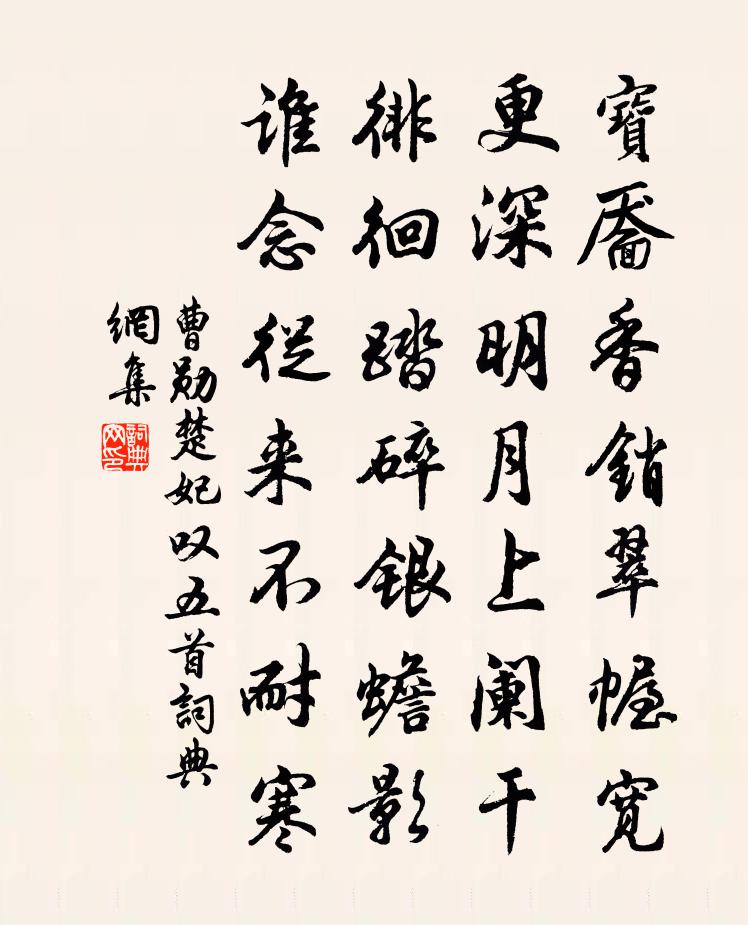 寶靨香銷翠幄寬
更深明月上闌干
徘徊踏碎銀蟾影
誰念從来不耐寒
曹勛楚妃叹五首詞典
網集
詞典网印